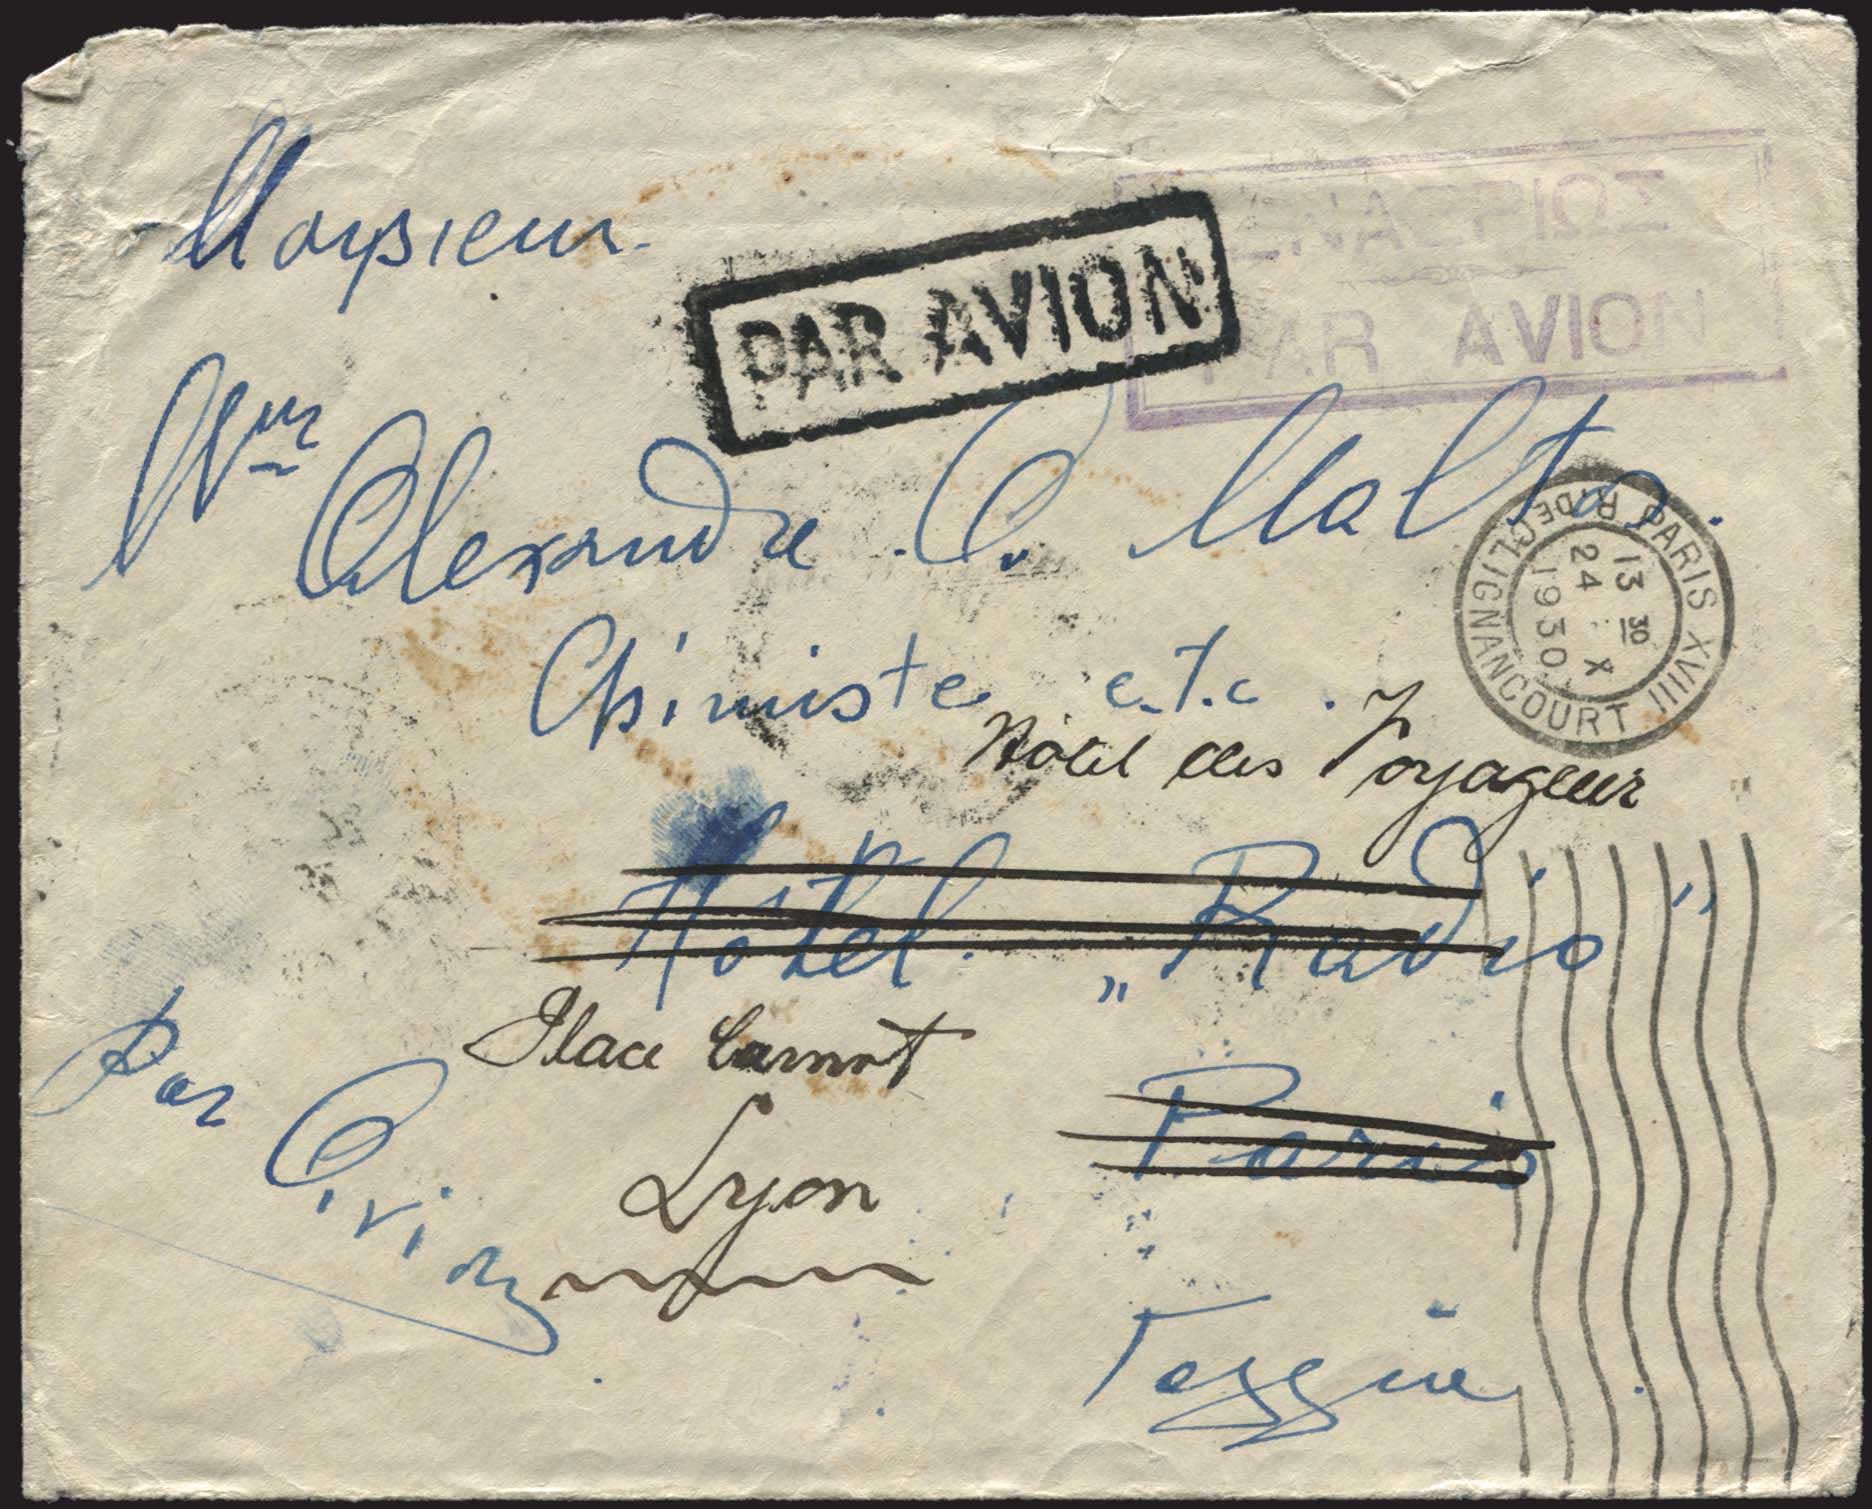 Monsieur
ΕΝΑΕΡΙΩΣ
PAR AVION
PAR AVION
Mur Alexandre C. Malta.
PARIS XVIII R. DE CLIGNANCOURT
13 30
24 X
1930
Chimiste e.t.c.
Hôtel des Voyageur
Hôtel. „Radio"
Place Carnot
Par Avion
Paris
Lyon